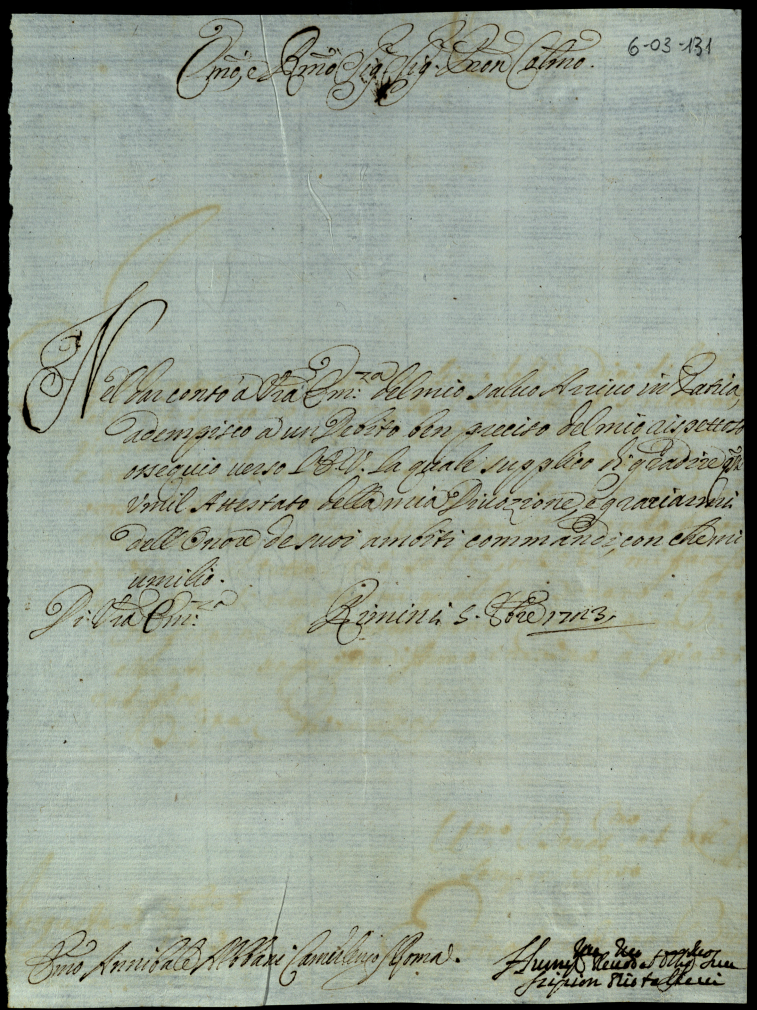 6-03-131
Emo, e Rmo Sig. Sig. Pron Colmo.
Nel dar conto à Vra Em.za del mio salvo Arivo in Patria,
adempisco à un Debito ben preciso del mio rispettoso
ossequio verso l'E.V. la quale supplico di gradire
Umil Attestato della mia Divozione, e graziarmi
dell'Onore de suoi ambiti commandi, con che mi
umilio.
Di Vra Em.za Rimini 5. 1723.
Emo Annibale Albani Camerlingo Roma.